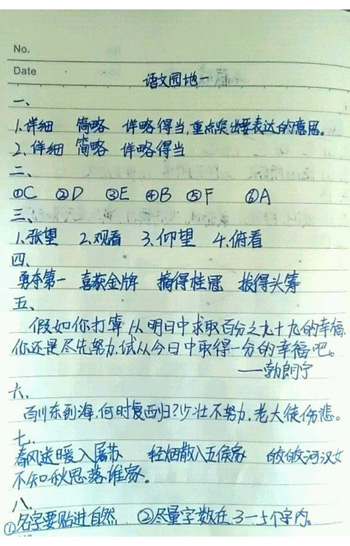 No.
Date
语文园地一
一、
1.详细 简略 详略得当,重点突出要表达的意思。
2.详细 简略 详略得当
二、
①C ②D ③E ④B ⑤F ⑥A
三、
1.张望 2.观看 3.仰望 4.俯看
四、
勇夺第一 喜获金牌 摘得桂冠 拔得头筹
五、
假如你打算从明日中求取百分之九十九的幸福,
你还是尽先努力,试从今日中取得一分的幸福吧。
——勃朗宁
六、
百川东到海,何时复西归?少壮不努力,老大徒伤悲。
七、
春风送暖入屠苏 轻烟散入五侯家 皎皎河汉女
不知秋思落谁家。
八、
①名字要贴进自然 ②尽量字数在3—5个字内。